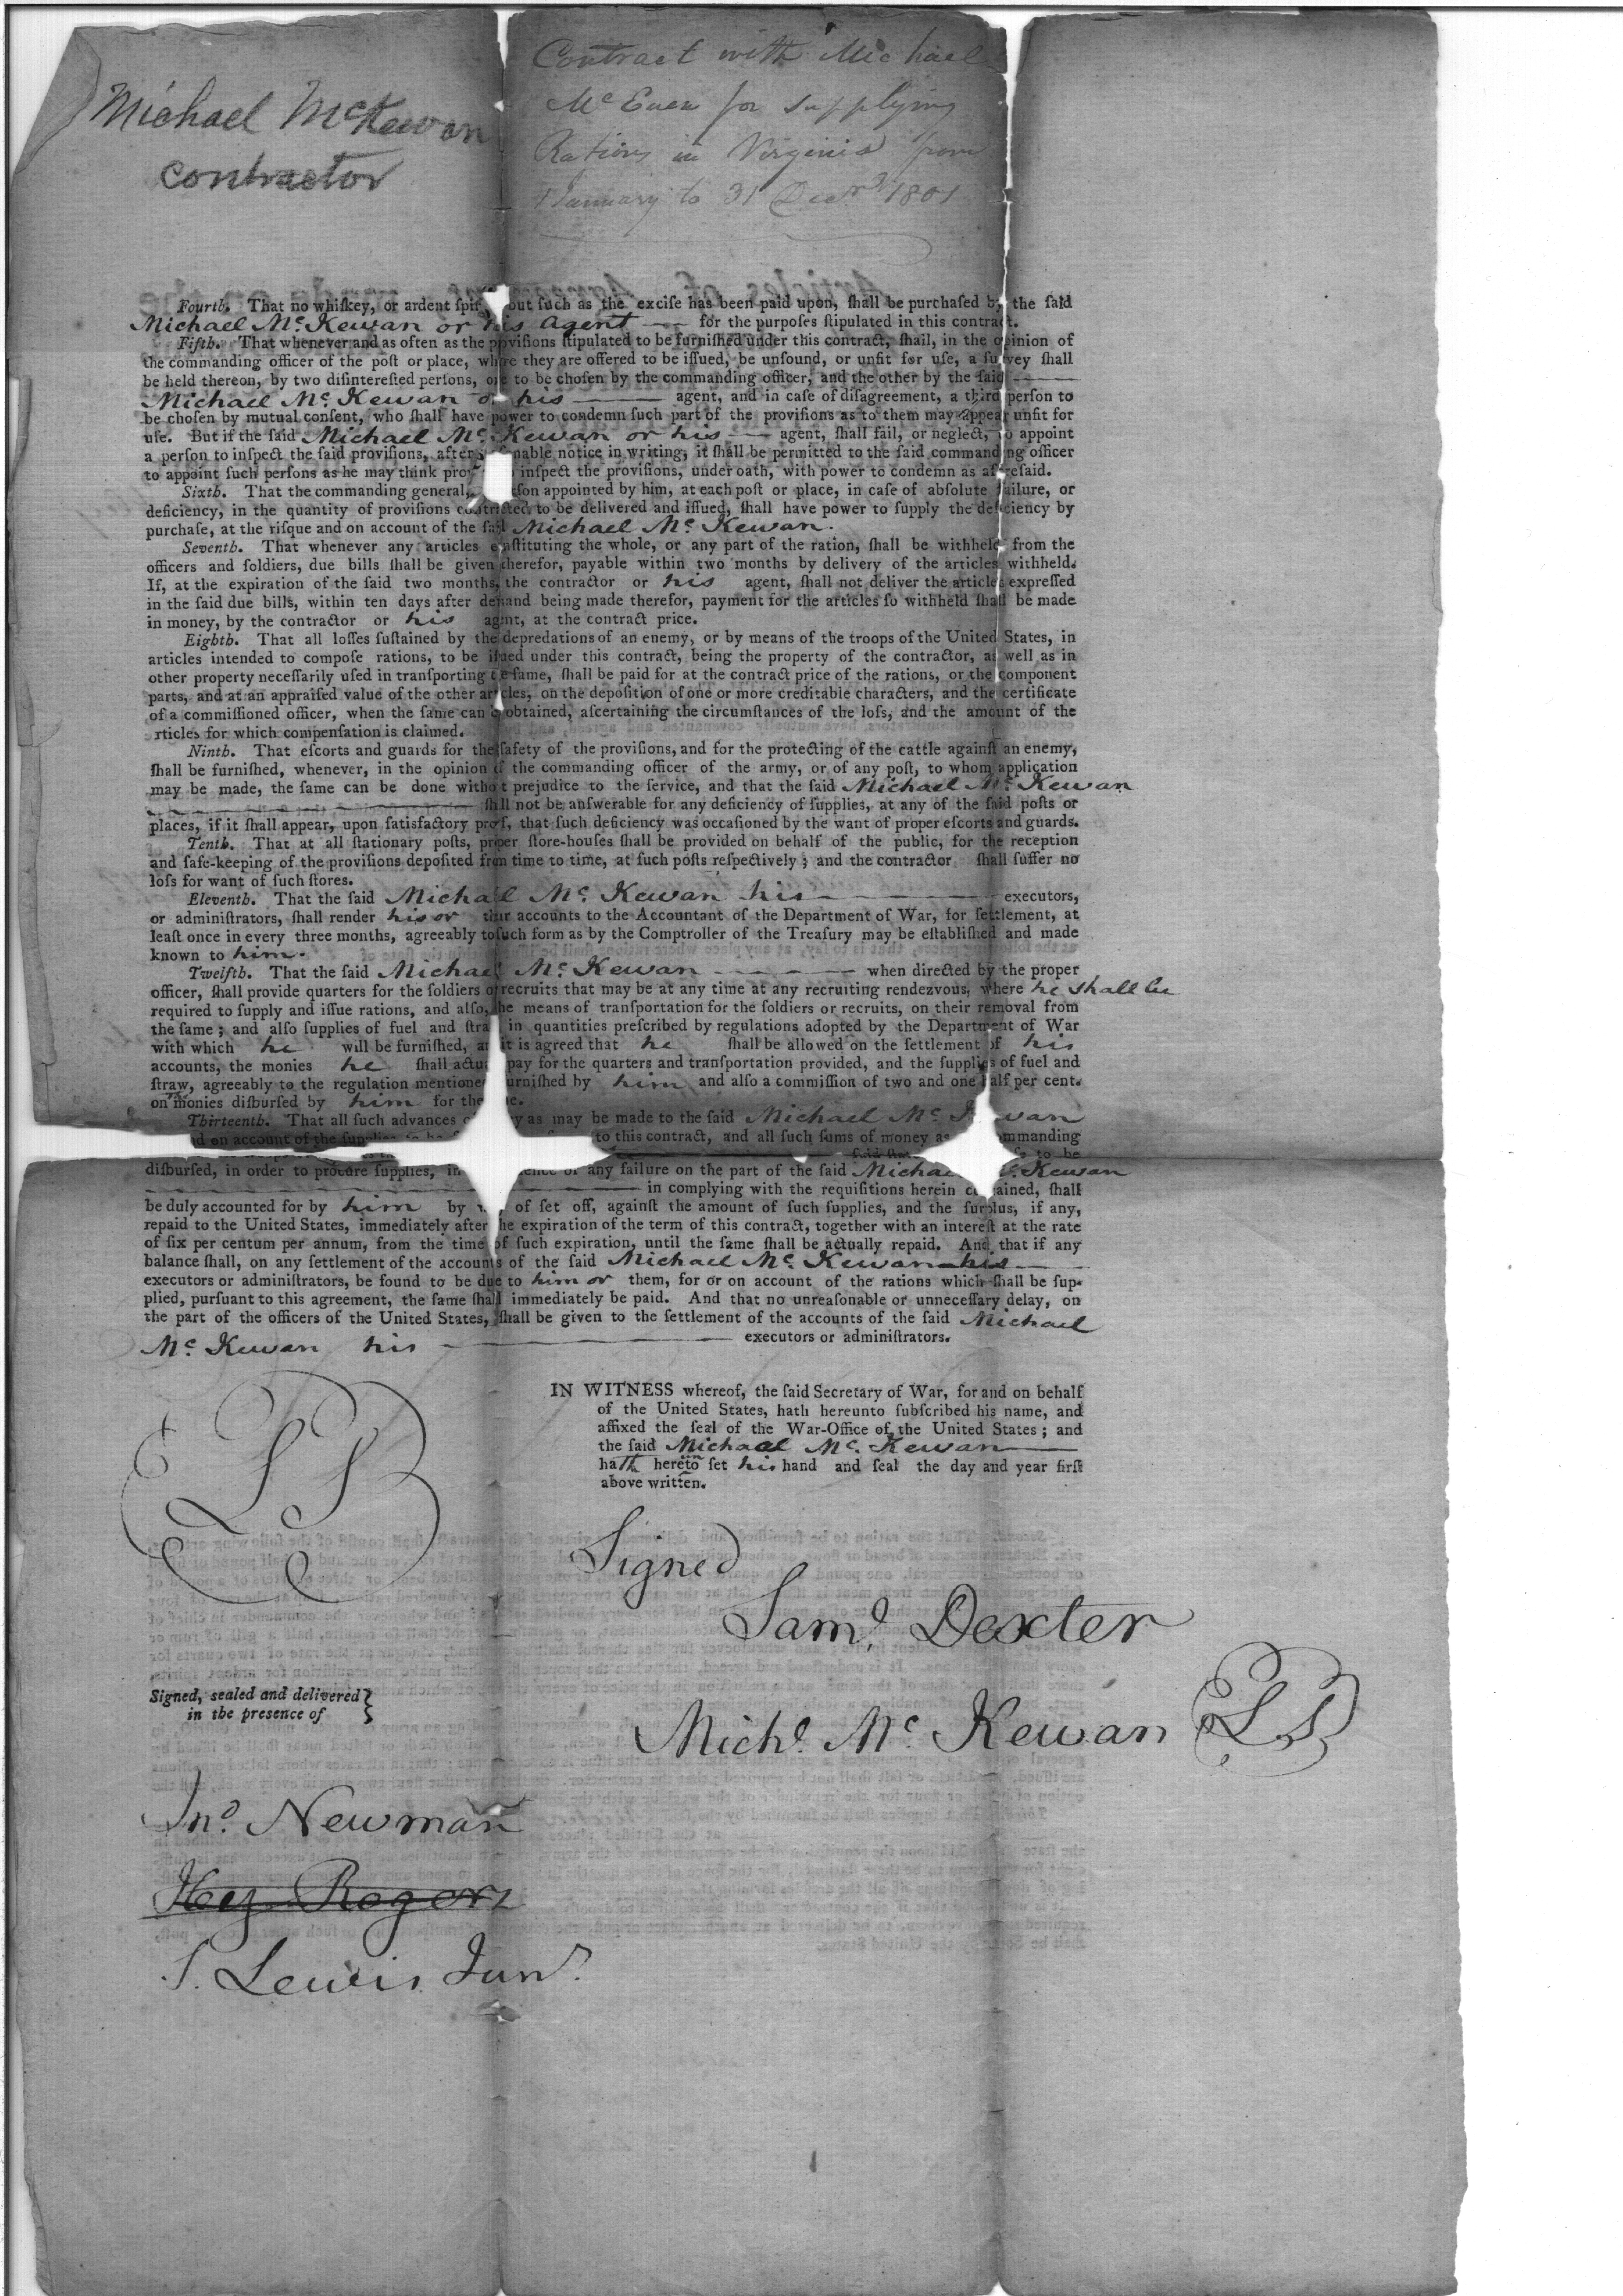 Michael McKewan
contractor
Contract with Michael
Mc Euen for supplying
Rations in Virginia from
1 January to 31 Decr 1801
Fourth. That no whiſkey, or ardent ſpi but ſuch as the exciſe has been paid upon, ſhall be purchaſed by the ſaid
Michael Mc. Kewan or his Agent for the purpoſes ſtipulated in this contract.
Fifth. That whenever and as often as the proviſions ſtipulated to be furniſhed under this contract, ſhall, in the opinion of
the commanding officer of the poſt or place, where they are offered to be iſſued, be unſound, or unfit for uſe, a ſurvey ſhall
be held thereon, by two diſintereſted perſons, one to be choſen by the commanding officer, and the other by the ſaid
Michael Mc. Kewan or his agent, and in caſe of diſagreement, a third perſon to
be choſen by mutual conſent, who ſhall have power to condemn ſuch part of the proviſions as to them may appear unfit for
uſe. But if the ſaid Michael Mc. Kewan or his agent, ſhall fail, or neglect, to appoint
a perſon to inſpect the ſaid proviſions, after nable notice in writing, it ſhall be permitted to the ſaid commanding officer
to appoint ſuch perſons as he may think pro inſpect the proviſions, under oath, with power to condemn as aforeſaid.
Sixth. That the commanding general, rſon appointed by him, at each poſt or place, in caſe of abſolute failure, or
deficiency, in the quantity of proviſions contracted to be delivered and iſſued, ſhall have power to ſupply the deficiency by
purchaſe, at the riſque and on account of the ſaid Michael Mc. Kewan.
Seventh. That whenever any articles conſtituting the whole, or any part of the ration, ſhall be withheld from the
officers and ſoldiers, due bills ſhall be given therefor, payable within two months by delivery of the articles withheld.
If, at the expiration of the ſaid two months, the contractor or his agent, ſhall not deliver the articles expreſſed
in the ſaid due bills, within ten days after demand being made therefor, payment for the articles ſo withheld ſhall be made
in money, by the contractor or his agent, at the contract price.
Eighth. That all loſſes ſuſtained by the depredations of an enemy, or by means of the troops of the United States, in
articles intended to compoſe rations, to be iſſued under this contract, being the property of the contractor, as well as in
other property neceſſarily uſed in tranſporting the ſame, ſhall be paid for at the contract price of the rations, or the component
parts, and at an appraiſed value of the other articles, on the depoſition of one or more creditable characters, and the certificate
of a commiſſioned officer, when the ſame can be obtained, aſcertaining the circumſtances of the loſs, and the amount of the
rticles for which compenſation is claimed.
Ninth. That eſcorts and guards for the ſafety of the proviſions, and for the protecting of the cattle againſt an enemy,
ſhall be furniſhed, whenever, in the opinion of the commanding officer of the army, or of any poſt, to whom application
may be made, the ſame can be done without prejudice to the ſervice, and that the ſaid Michael Mc. Kewan
ſhall not be anſwerable for any deficiency of ſupplies, at any of the ſaid poſts or
places, if it ſhall appear, upon ſatisfactory proof, that ſuch deficiency was occaſioned by the want of proper eſcorts and guards.
Tenth. That at all ſtationary poſts, proper ſtore-houſes ſhall be provided on behalf of the public, for the reception
and ſafe-keeping of the proviſions depoſited from time to time, at ſuch poſts reſpectively; and the contractor ſhall ſuffer no
loſs for want of ſuch ſtores.
Eleventh. That the ſaid Michael Mc. Kewan his executors,
or adminiſtrators, ſhall render his or their accounts to the Accountant of the Department of War, for ſettlement, at
leaſt once in every three months, agreeably to ſuch form as by the Comptroller of the Treaſury may be eſtabliſhed and made
known to him.
Twelfth. That the ſaid Michael Mc. Kewan when directed by the proper
officer, ſhall provide quarters for the ſoldiers or recruits that may be at any time at any recruiting rendezvous, where he shall be
required to ſupply and iſſue rations, and alſo, the means of tranſportation for the ſoldiers or recruits, on their removal from
the ſame; and alſo ſupplies of fuel and ſtra in quantities preſcribed by regulations adopted by the Department of War
with which he will be furniſhed, an it is agreed that he ſhall be allowed on the ſettlement of his
accounts, the monies he ſhall actu pay for the quarters and tranſportation provided, and the ſupplies of fuel and
ſtraw, agreeably to the regulation mentioned furniſhed by him and alſo a commiſſion of two and one half per cent.
on the monies diſburſed by him for the
Thirteenth. That all ſuch advances y as may be made to the ſaid Michael Mc. wan
d on account of the ſupplies to this contract, and all ſuch ſums of money as mmanding
to be
diſburſed, in order to procure ſupplies, in any failure on the part of the ſaid Michael Kewan
in complying with the requiſitions herein contained, ſhall
be duly accounted for by him by of ſet off, againſt the amount of ſuch ſupplies, and the ſurplus, if any,
repaid to the United States, immediately after the expiration of the term of this contract, together with an intereſt at the rate
of ſix per centum per annum, from the time of ſuch expiration, until the ſame ſhall be actually repaid. And that if any
balance ſhall, on any ſettlement of the accounts of the ſaid Michael Mc. Kewan his
executors or adminiſtrators, be found to be due to him or them, for or on account of the rations which ſhall be ſup-
plied, purſuant to this agreement, the ſame ſhall immediately be paid. And that no unreaſonable or unneceſſary delay, on
the part of the officers of the United States, ſhall be given to the ſettlement of the accounts of the ſaid Michael
Mc. Kewan his executors or adminiſtrators.
IN WITNESS whereof, the ſaid Secretary of War, for and on behalf
of the United States, hath hereunto ſubſcribed his name, and
affixed the ſeal of the War-Office of the United States; and
the ſaid Michael Mc. Kewan
hath hereto ſet his hand and ſeal the day and year firſt
above written.
LS
Signed
Saml. Dexter
Signed, sealed and delivered
in the presence of
Michl. Mc. Kewan LS
Jno. Newman
Hez Rogers
S. Lewis Junr.